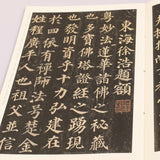 東海徐浩題額
粵妙法蓮華諸佛之秘藏
也多寶佛塔證經之踊現
也發明資乎十力弘建在
於四依有禪師法号楚金
姓程廣平人也祖父並信